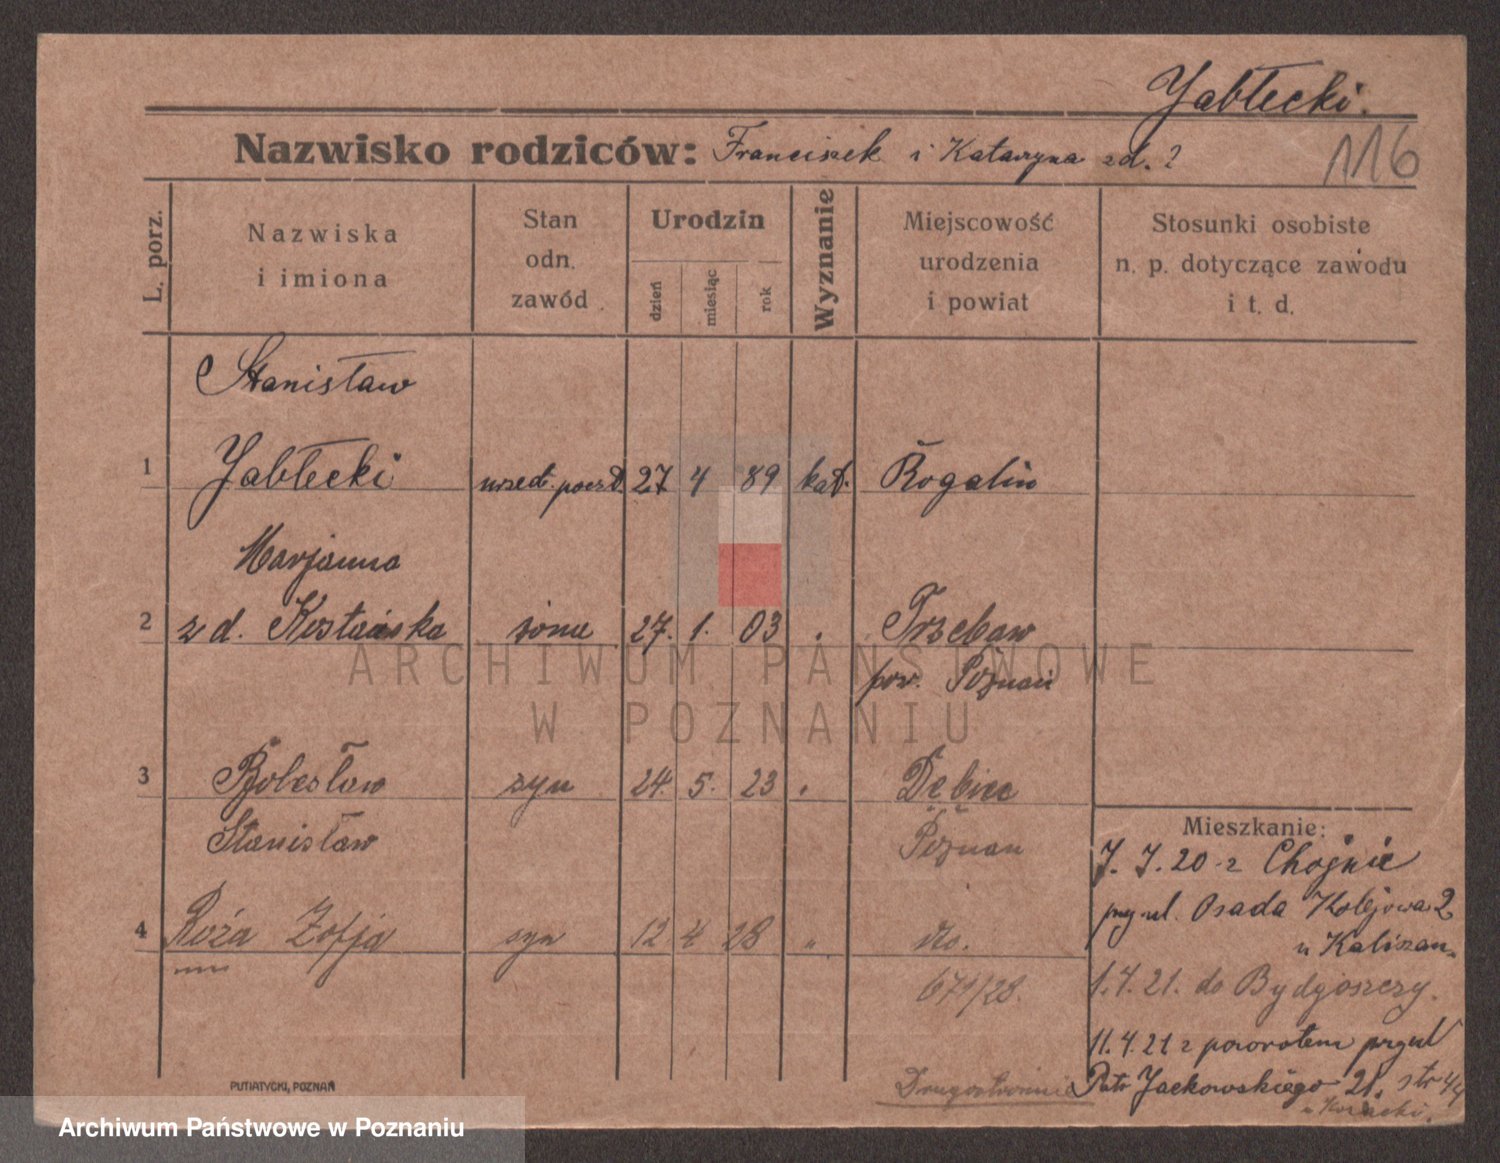 Yabłecki.
Nazwisko rodziców: Franciszek i Katarzyna zd. ?
116
L. porz.
Nazwiska
i imiona
Stan
odn.
zawód
Urodzin
dzień
miesiąc
rok
Wyznanie
Miejscowość
urodzenia
i powiat
Stosunki osobiste
n. p. dotyczące zawodu
i t. d.
Stanisław
1 Yabłecki urzęd. poczt. 27 4 89 kat. Rogalin
Marjanna
2 z d. żona 27. 1. 03 " Trzebaw
pow. Poznań
3 Bolesław syn 24. 5. 23 " Dębiec
Stanisław Poznań
4 Róża Zofja syn 12 4 28 " dto.
671/28.
Mieszkanie:
7. 7. 20 z Chojnic
przy ul. Osada Kolejowa 2
u Kaliszan.
1. 4. 21. do Bydgoszczy.
11. 4. 21 z powrotem przy ul
Patr Jackowskiego 21. str 44
Drugostronnie
PUTIATYCKI, POZNAŃ
ARCHIWUM PAŃSTWOWE
W POZNANIU
Archiwum Państwowe w Poznaniu